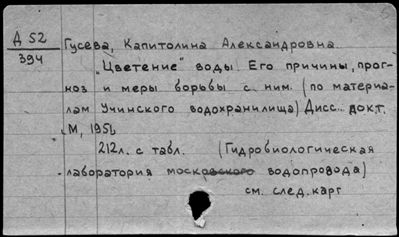 Д 52
394
Гусева, Капитолина Александровна.
"Цветение" воды. Его причины, прог-
ноз и меры борьбы с ним. (по материа-
лам Учинского водохранилища) Дисс. докт.
М, 1951.
212л. с табл. (Гидробиологическая
лаборатория московского водопровода)
см. след. карт